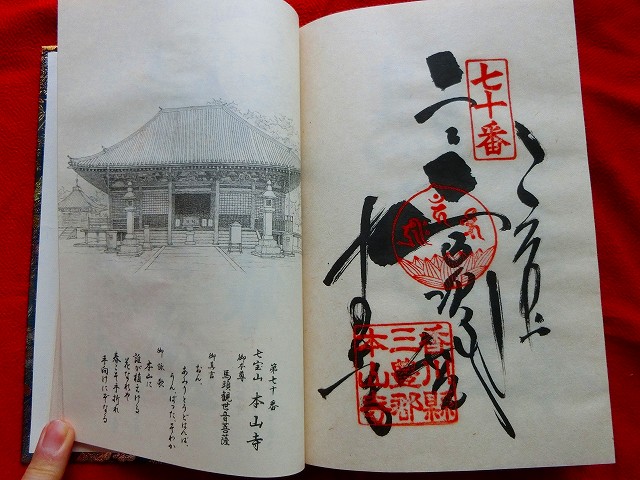 七十番
奉拝
本山寺
香川縣
三豊郷
本山寺
第七十番
七宝山 本山寺
御本尊
馬頭観世音菩薩
御真言
おん、
あみりとうどはんば、
うん、ぱった、そわか
御詠歌
本山に
誰が植ゑける
花なれや
春こそ手折れ
手向けにぞなる